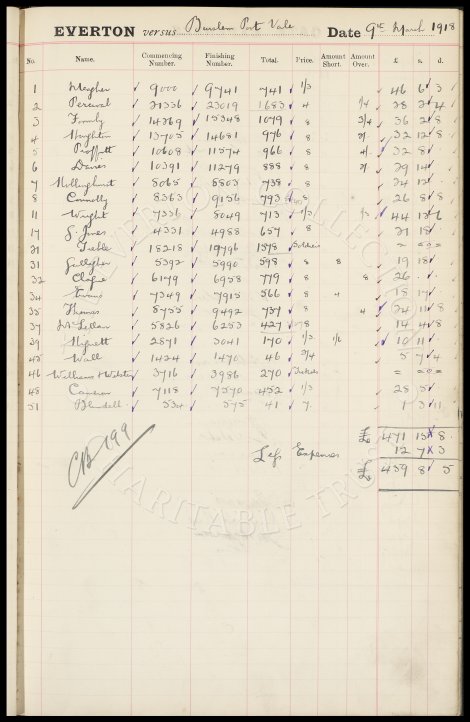 EVERTON versus Burslem Port Vale Date 9th March 1918
No. Name. Commencing Number. Finishing Number. Total. Price. Amount Short. Amount Over. £ s. d.
1 Meagher 9000 9741 741 1/3 46 6 3
2 Percival 21336 23019 1683 4 28 2 4
3 14269 15348 1079 8 3/4 36 2 8
4 Hughton 13705 14681 976 8 32 12 8
5 Proffitt 10608 11574 966 8 32 8
6 Davies 10391 11279 888 8 29 14
7 Hollinghurst 8065 8803 738 8 24 12
8 Connolly 8363 9156 793 8 26 8 8
11 Wright 7336 8049 713 1/3 44 13 6
17 G. Jones 4331 4988 657 8 21 18
29 18218 19796 1578 Soldiers
31 Gallagher 5392 5990 598 8 8 19 18
32 Clague 6179 6958 779 8 8 26
34 Evans 7349 7915 566 8 4 18 17
35 Thomas 8755 9492 737 8 4 24 11 8
37 McLellan 5826 6253 427 8 14 4 8
39 2871 3041 170 1/3 1/6 10 11
45 Wall 1424 1470 46 2/4 5 7 4
46 Williams & Webster 3716 3986 270 Tickets
48 Cameron 7118 7570 452 1/3 28 5
51 Blundell 534 575 41 7 1 3 11
£ 471 15 8
Less Expenses 12 7 3
£ 459 8 5
CB 199
EVERTON COLLECTION CHARITABLE TRUST